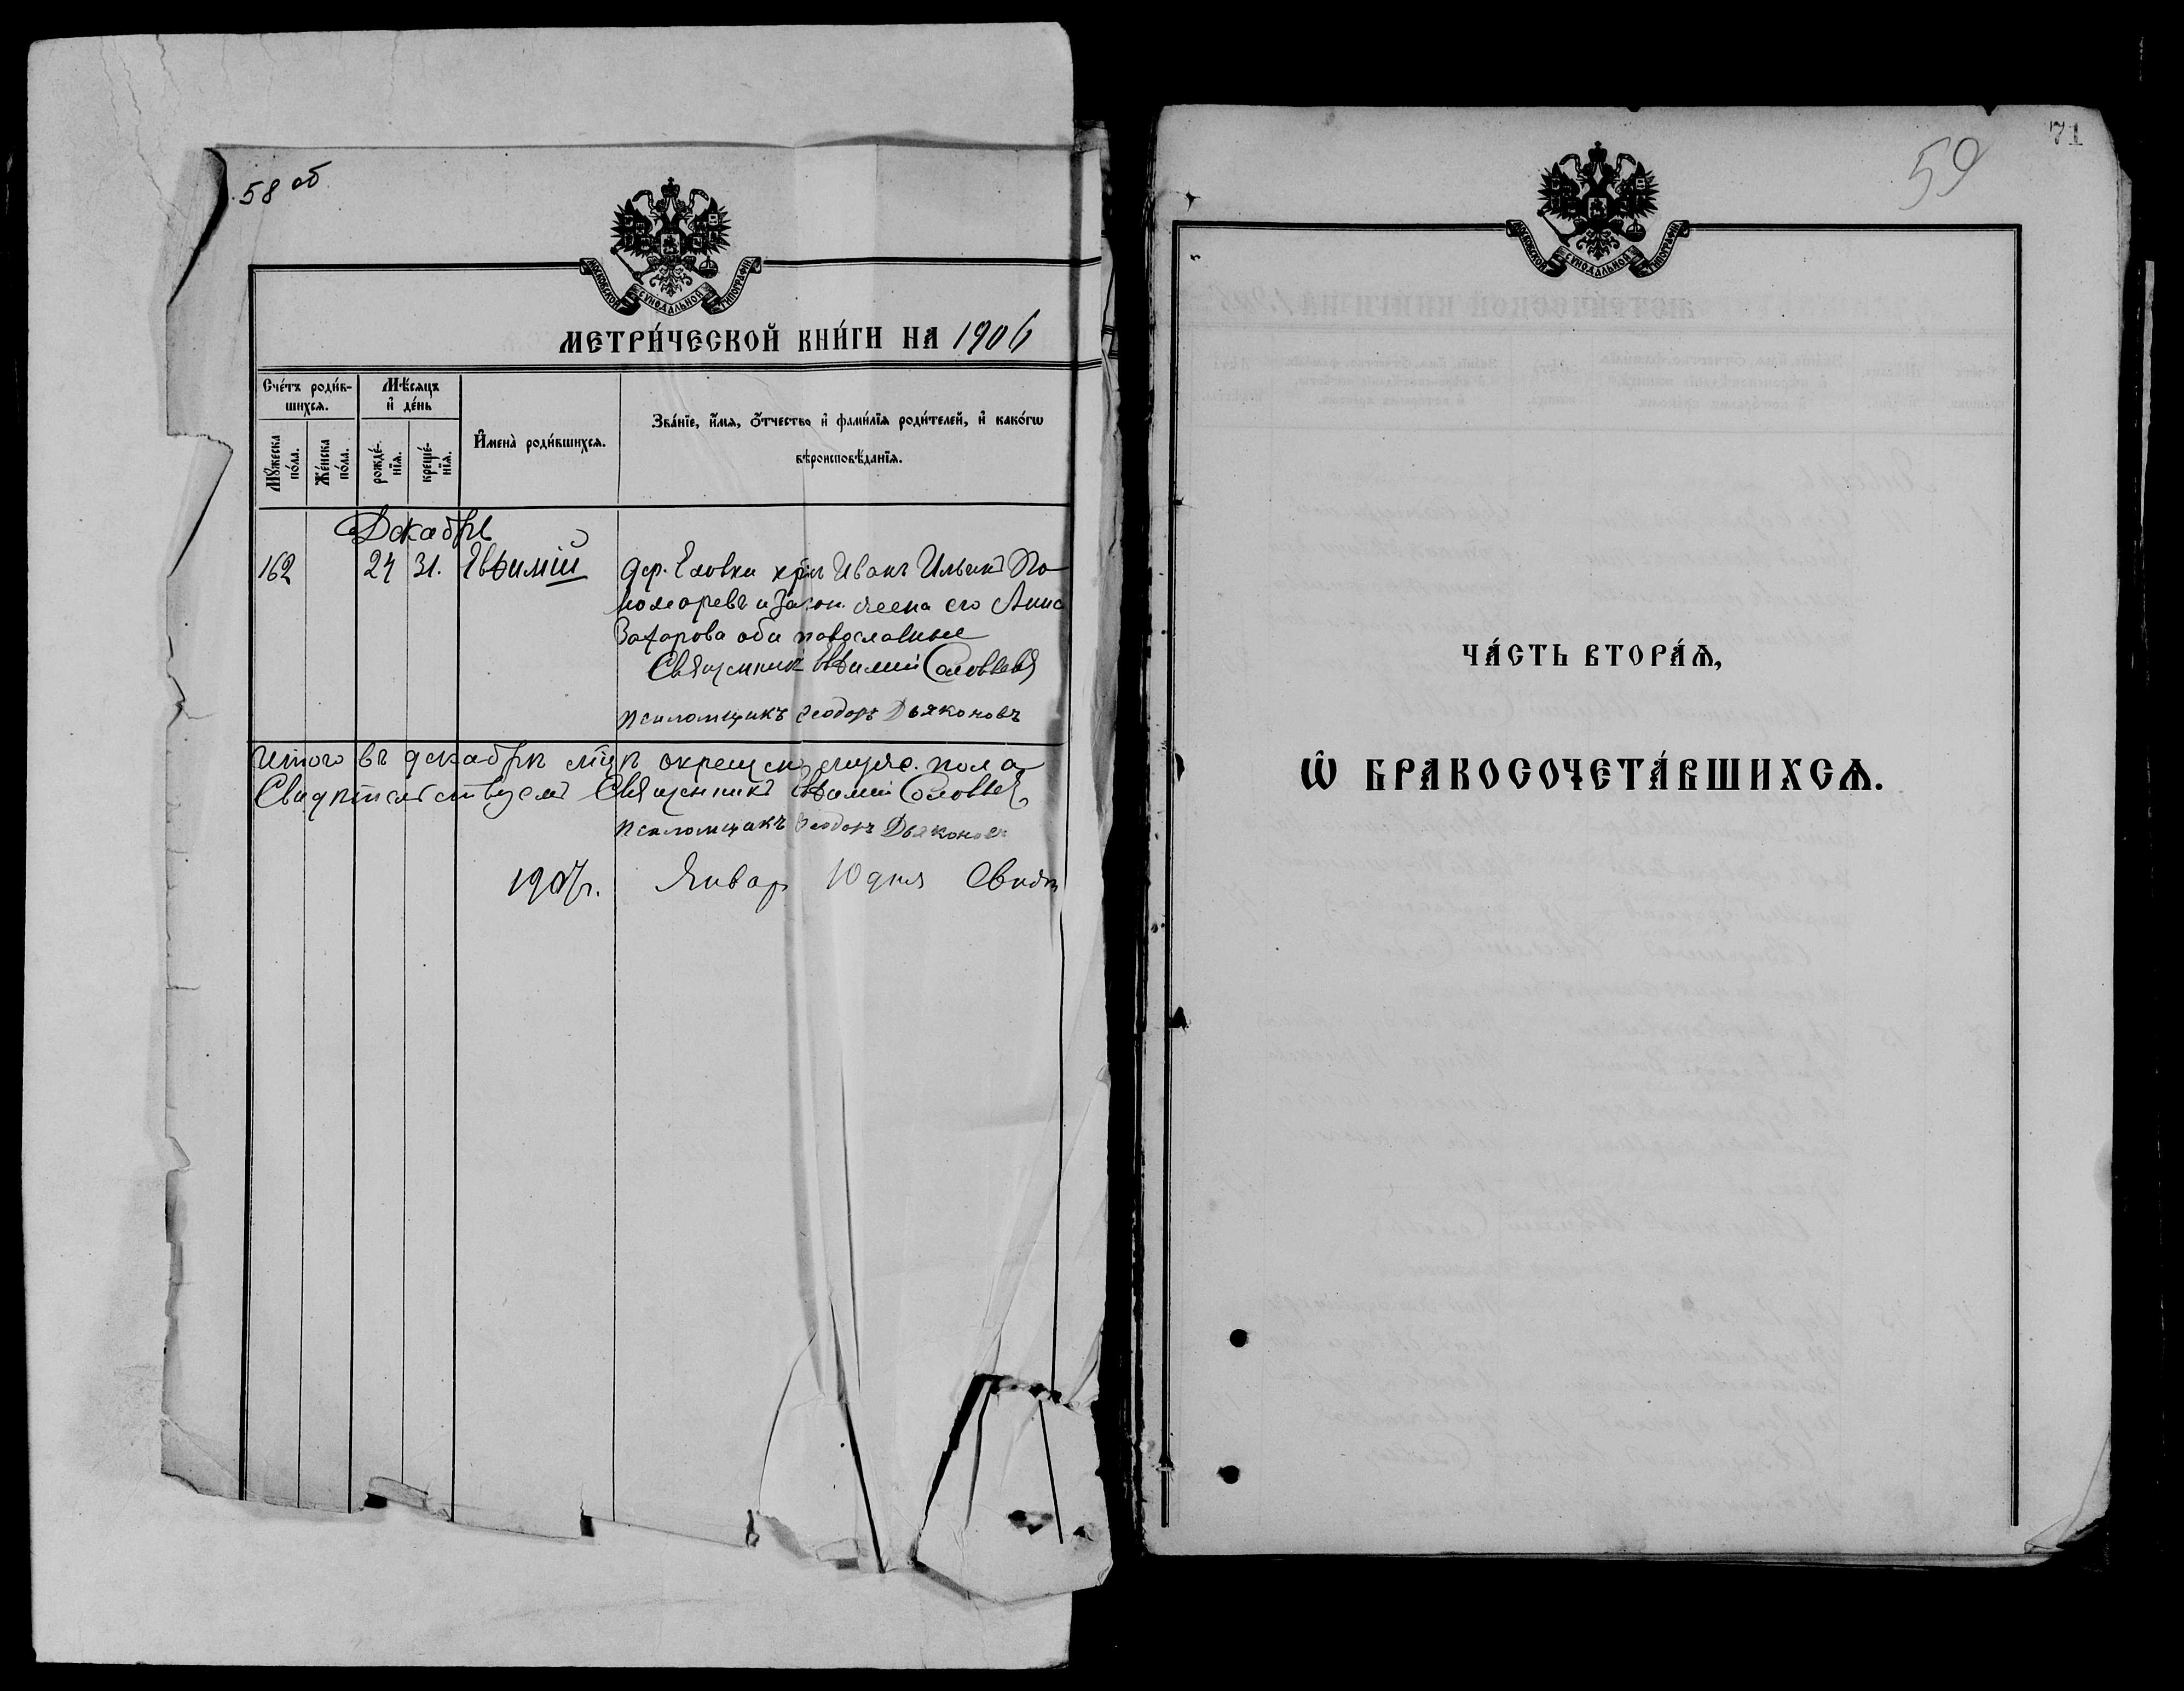 58 об
МОСКОВСКОЙ СѴНОДАЛЬНОЙ ТИПОГРАФІИ
МЕТРИ́ЧЕСКОЙ КНИ́ГИ НА 1906
Сче́тъ роди́в-
шихсѧ.
Мꙋ́жеска по́ла.
Же́нска по́ла.
Мѣ́сѧцъ
и҆ де́нь
рожде́-
нїѧ.
креще́-
нїѧ.
И҆мена̀ роди́вшихсѧ.
Зва́нїе, и҆́мѧ, ѻ҆́тчество и҆ фами́лїѧ роди́телей, и҆ како́гѡ
вѣроисповѣ́данїѧ.
Декабрь
162 24 31. Евѳимій
дер. Еловки кр Иванъ Ильинъ По
номаревъ и закон. жена его Анна
Захарова оба православные
Священник Евѳимій Соловьевъ
псаломщикъ Ѳеодоръ Дьяконовъ
Итого въ декабрѣ окрещен муже. пола
Свидѣтельствуемъ Священникъ Евѳимій Соловьев
псаломщикъ Ѳеодоръ Дьяконовъ
1907 г. Январ 10 дня Свидѣ
71
59
МОСКОВСКОЙ СѴНОДАЛЬНОЙ ТИПОГРАФІИ
ЧА́СТЬ ВТОРА́Ѧ,
Ѡ҆ БРАКОСОЧЕТА́ВШИХСѦ.